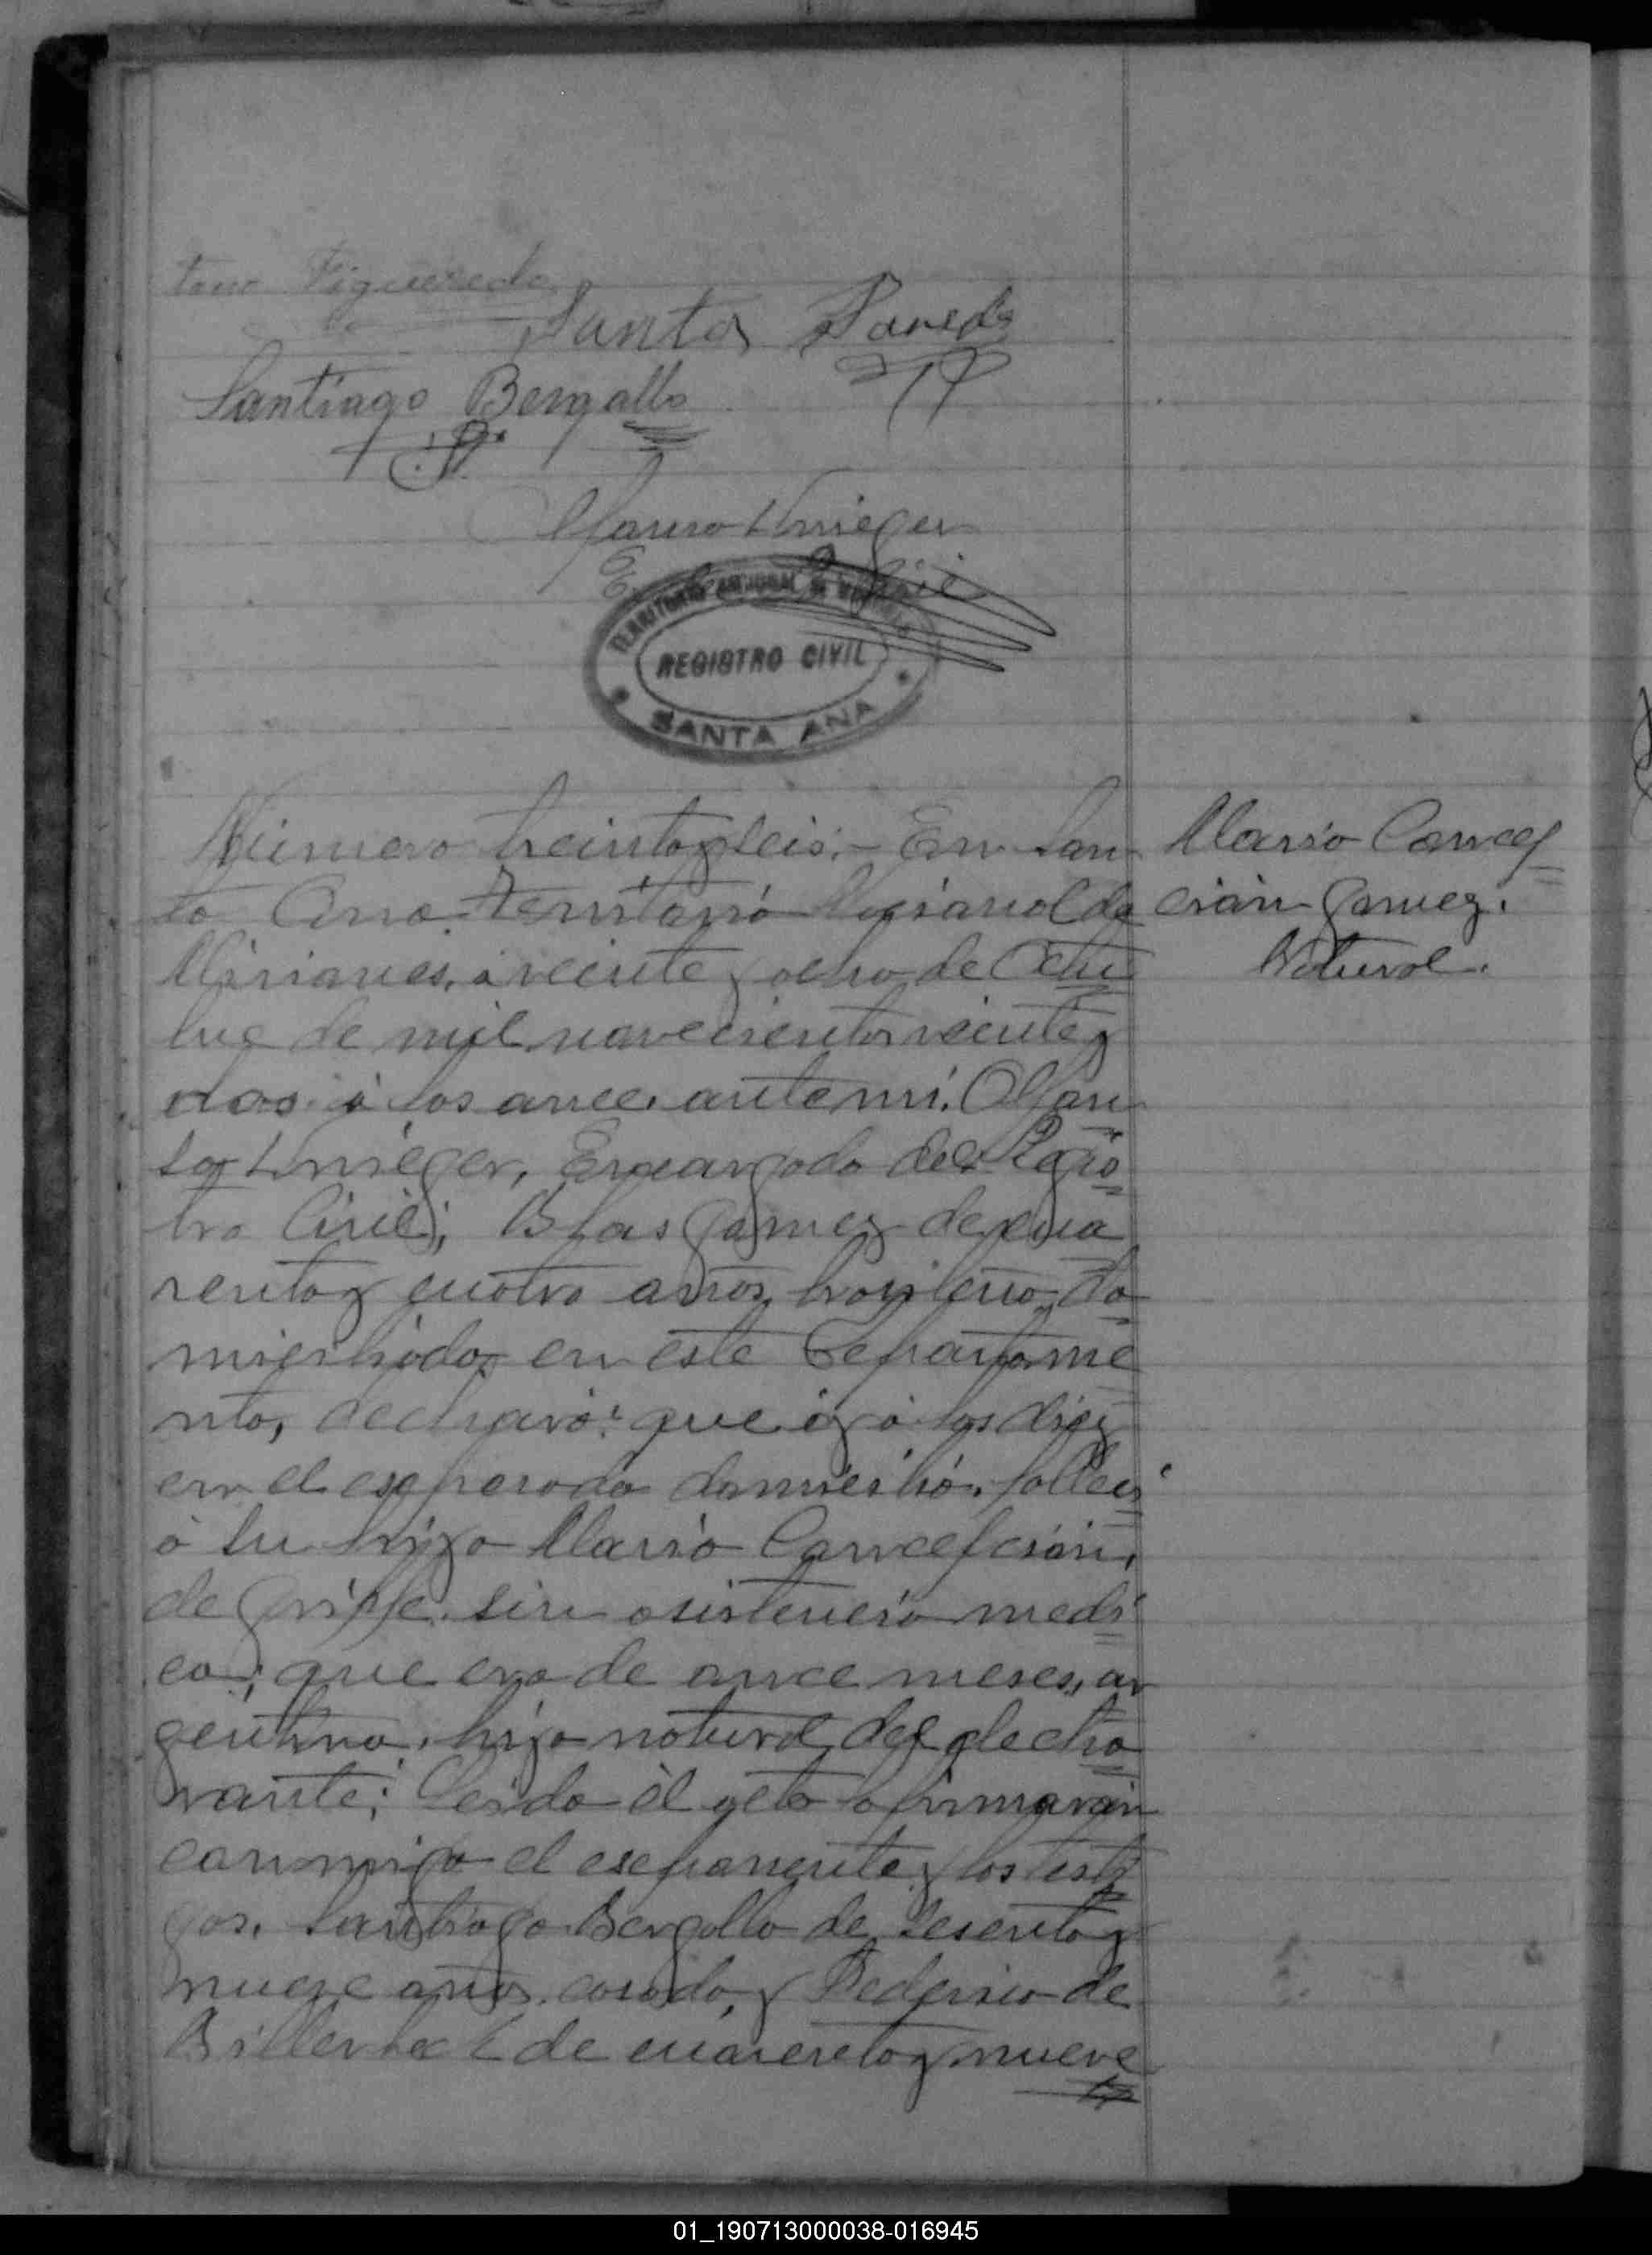 tano Figueredo
Santos Paredes
Santiago Bergallo
Alfonso Krieger
TERRITORIO NACIONAL DE MISIONES
REGISTRO CIVIL
SANTA ANA
Número treinta y seis.- En San-
ta Ana, Territorio Nacional de
Misiones, á veinte y ocho de Octu
bre de mil novecientos veinte y
dos á las once, ante mi, Alfon
so Krieger, Encargado del Regis
tro Civil; Blas Gomez de cua
renta y cuatro años, brasilero, do
miciliado en este Departame
nto, declaró: que hoy á las diez
en el espresado domicilio, falleci
ó su hija Maria Concepción,
de grippe, sin asistencia medi
ca; que era de once meses, ar
gentina, hija natural del decla
rante; Leida el acta la firmaran
conmigo el exponente y los testi
gos, Santiago Bergallo de sesenta y
nueve años, casado, y Federico de
de cuarenta y nueve
Maria Concep
ción Gomez.
Natural.
01_190713000038-016945